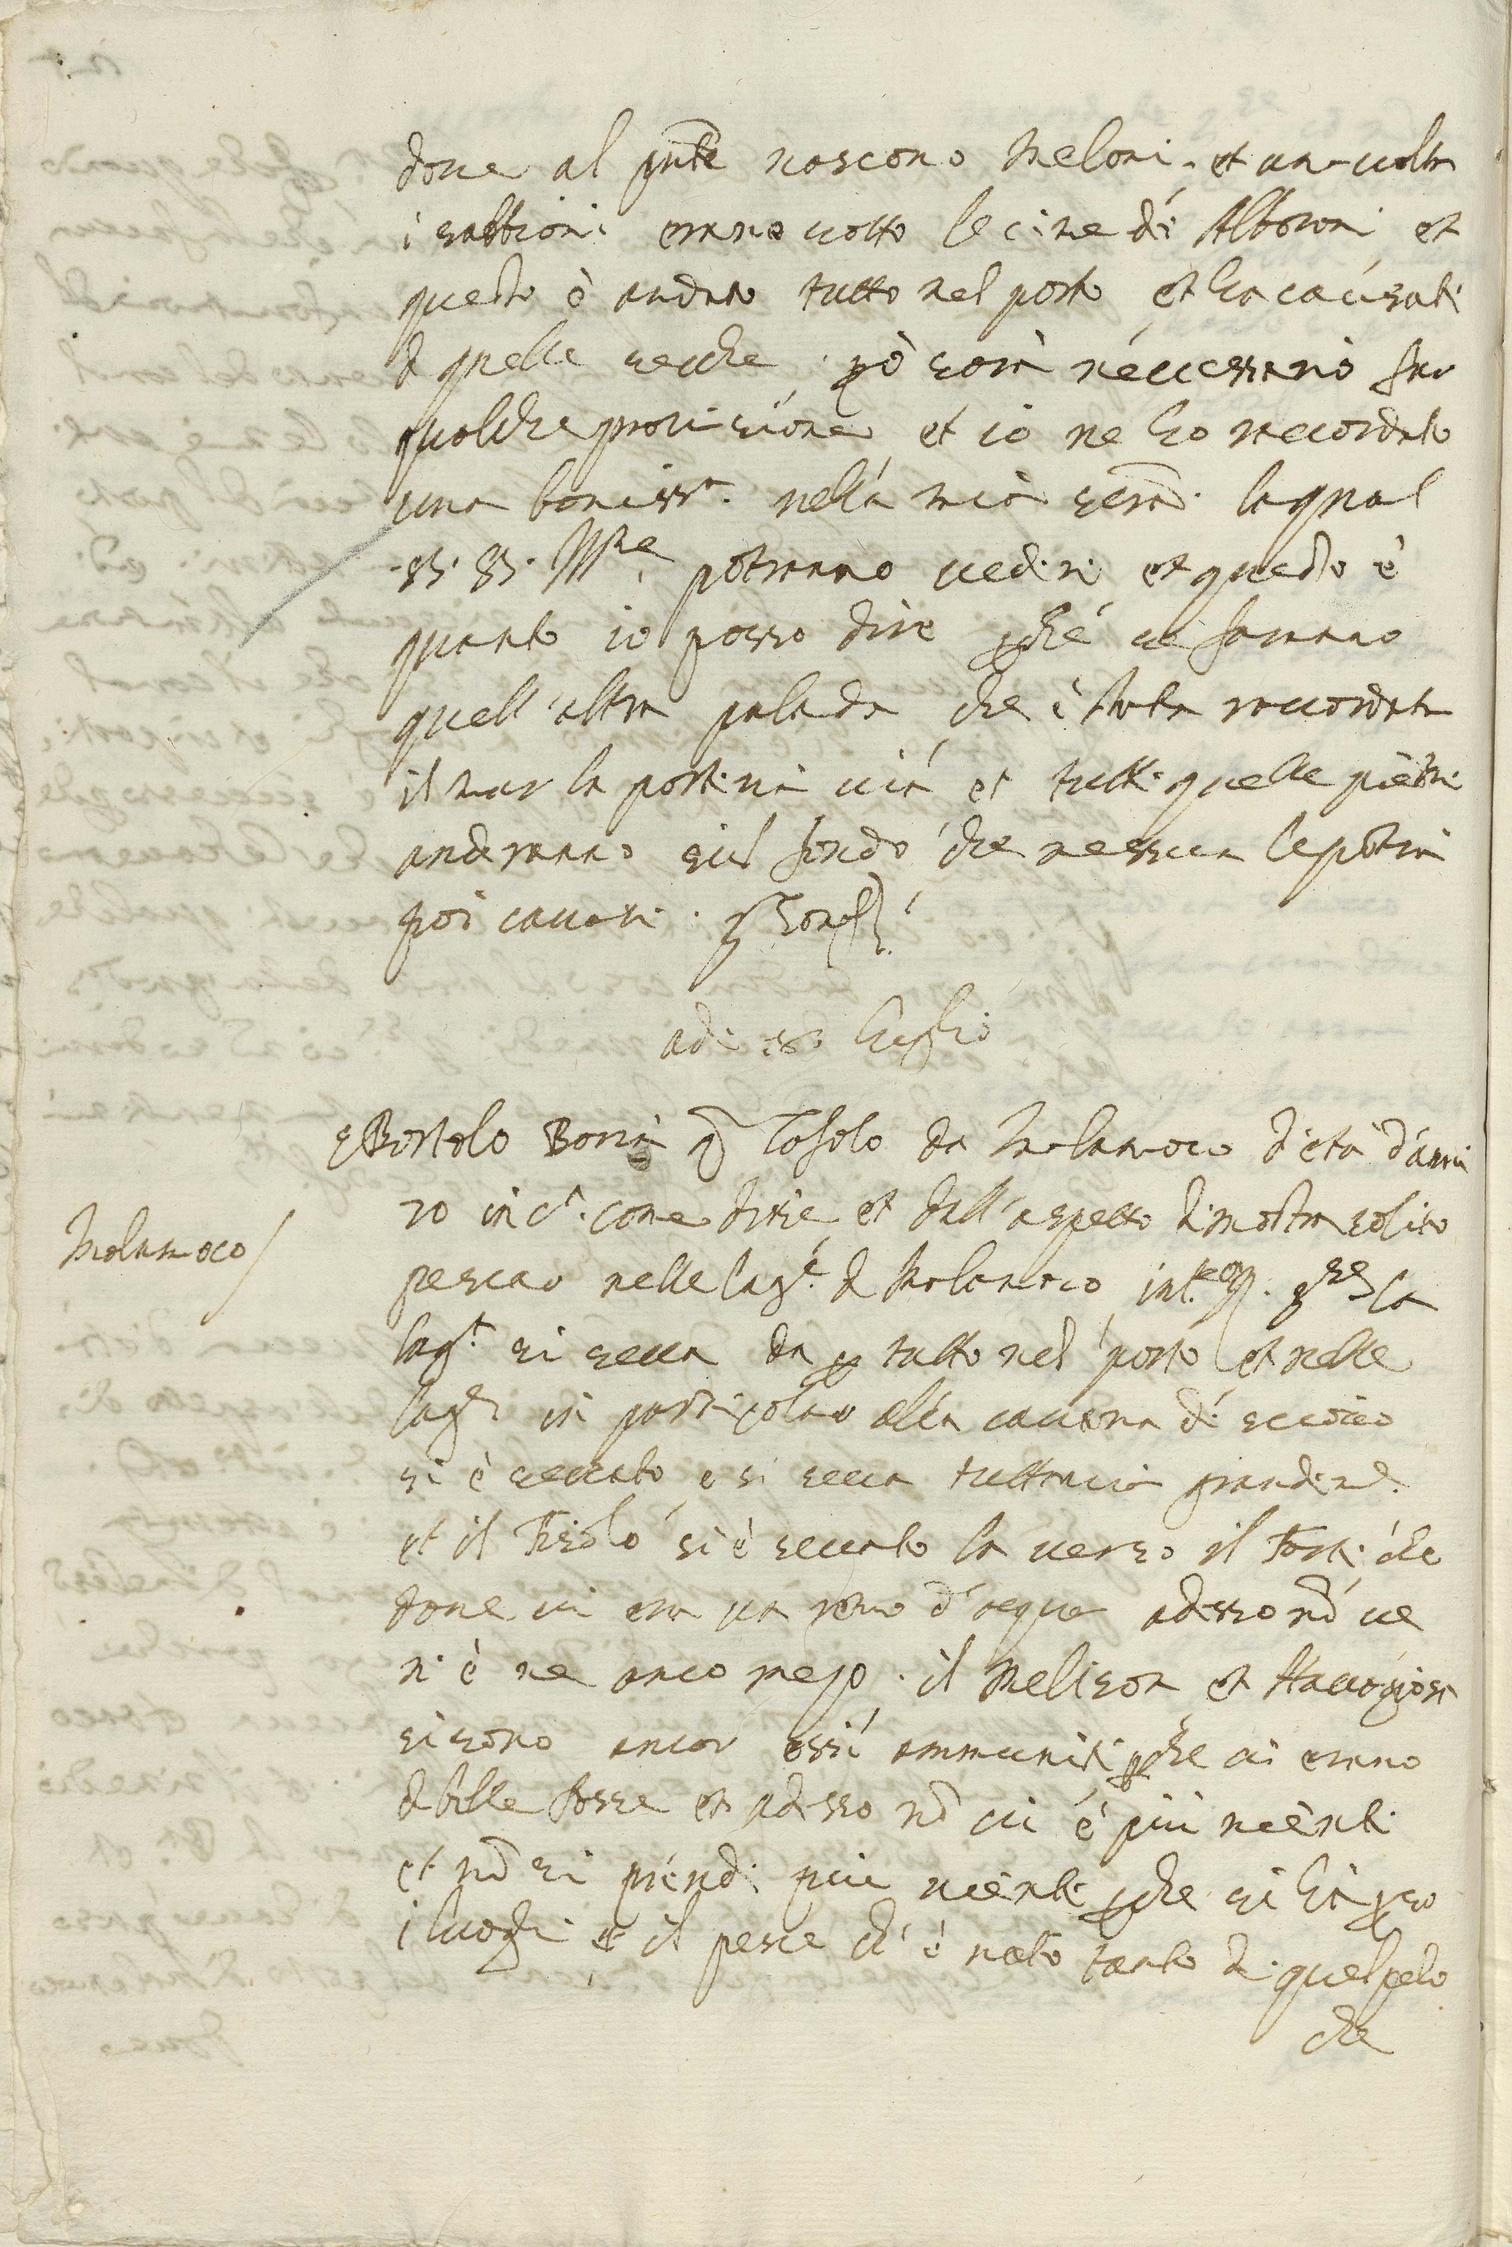 doue al pnte nascono meloni. et una uolta
i sabbioni erano sotto le cime di Alboroni et
questo è andato tutto nel porto et ha causati
di quelle secche però sarà neccessario far
qualche prouisione, et io ne ho racordato
una boniss.ᵃ nella mia
SS. SS. Ill.ʳᵉ potranno uedere et questo è
quanto io posso dire perché se faranno
quell'altra palada che è stata raccordata
il mar la porterà uià et tutte quelle pietre
anderanno sul fondo che nessun le potrà
poi cauare.
adi 18 luglio
Bortolo Boria q Tofolo da Malamoco d'età d'anni
70 in cᵃ. come disse, et dall'aspetto dimostra solito
Malamoco
pescar nelle lagᵉ. di Malamoco
lagᵃ. si secca da per tutto nel porto et nelle
lagᵉ in particolar alla cauana di
si è seccato, e si secca tuttauia grandemᵉ.
et il Fisolo si è seccato la uerso il Forte che
doue ui era un remo d'acqua adesso nõ ue
n'è ne anco mezo. il Melison et
si sono ancor essi ammuniti perche ui erano
di belle fosse et adesso nõ ui è più niente
et nõ si prende piu niente perche si ha perso
i luoghi et il pesce ch'è nato tanto di quel pelo
che